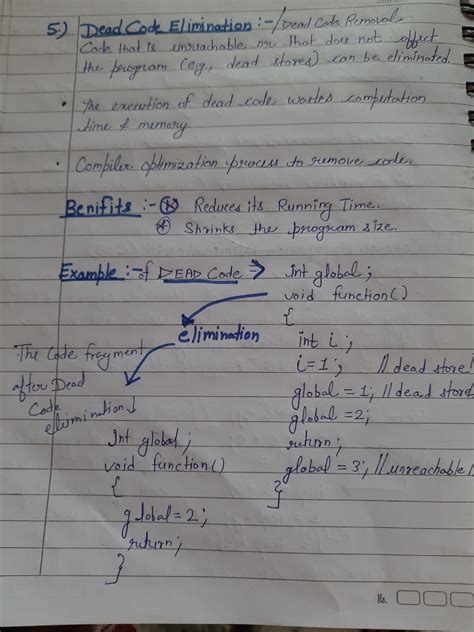 5.) Dead Code Elimination :-/Dead Code Removal.
Code that is unreachable or that does not affect
the program (eg., dead stores) can be eliminated.
• The execution of dead code wastes computation
time & memory.
• Compiler optimization process to remove code.
Benifits :- * Reduces its Running Time.
* Shrinks the program size.
Example :- of DEAD Code => int global;
void function()
{
int i;
i=1; // dead store!
global = 1; // dead store
global = 2;
return;
global = 3; // unreachable!
}
elimination
The Code fragment
after Dead
Code
elimination ↓
Int global;
void function()
{
global = 2;
return;
}